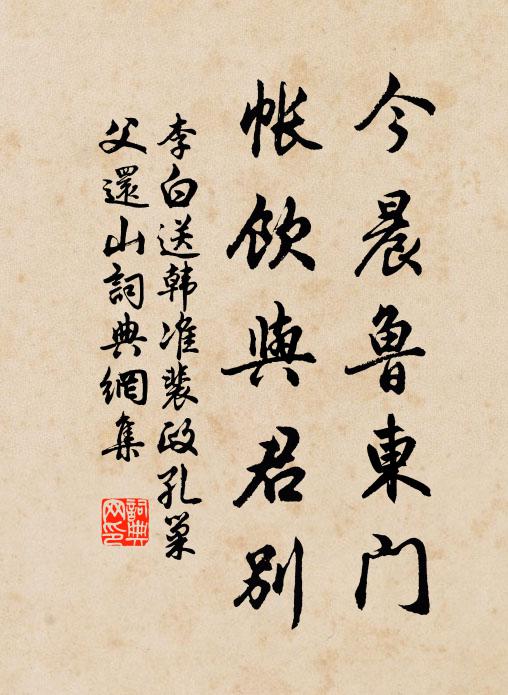 今晨魯東門
帳飲與君別
李白送韩准裴政孔巢
父還山詞典網集
詞典
网印